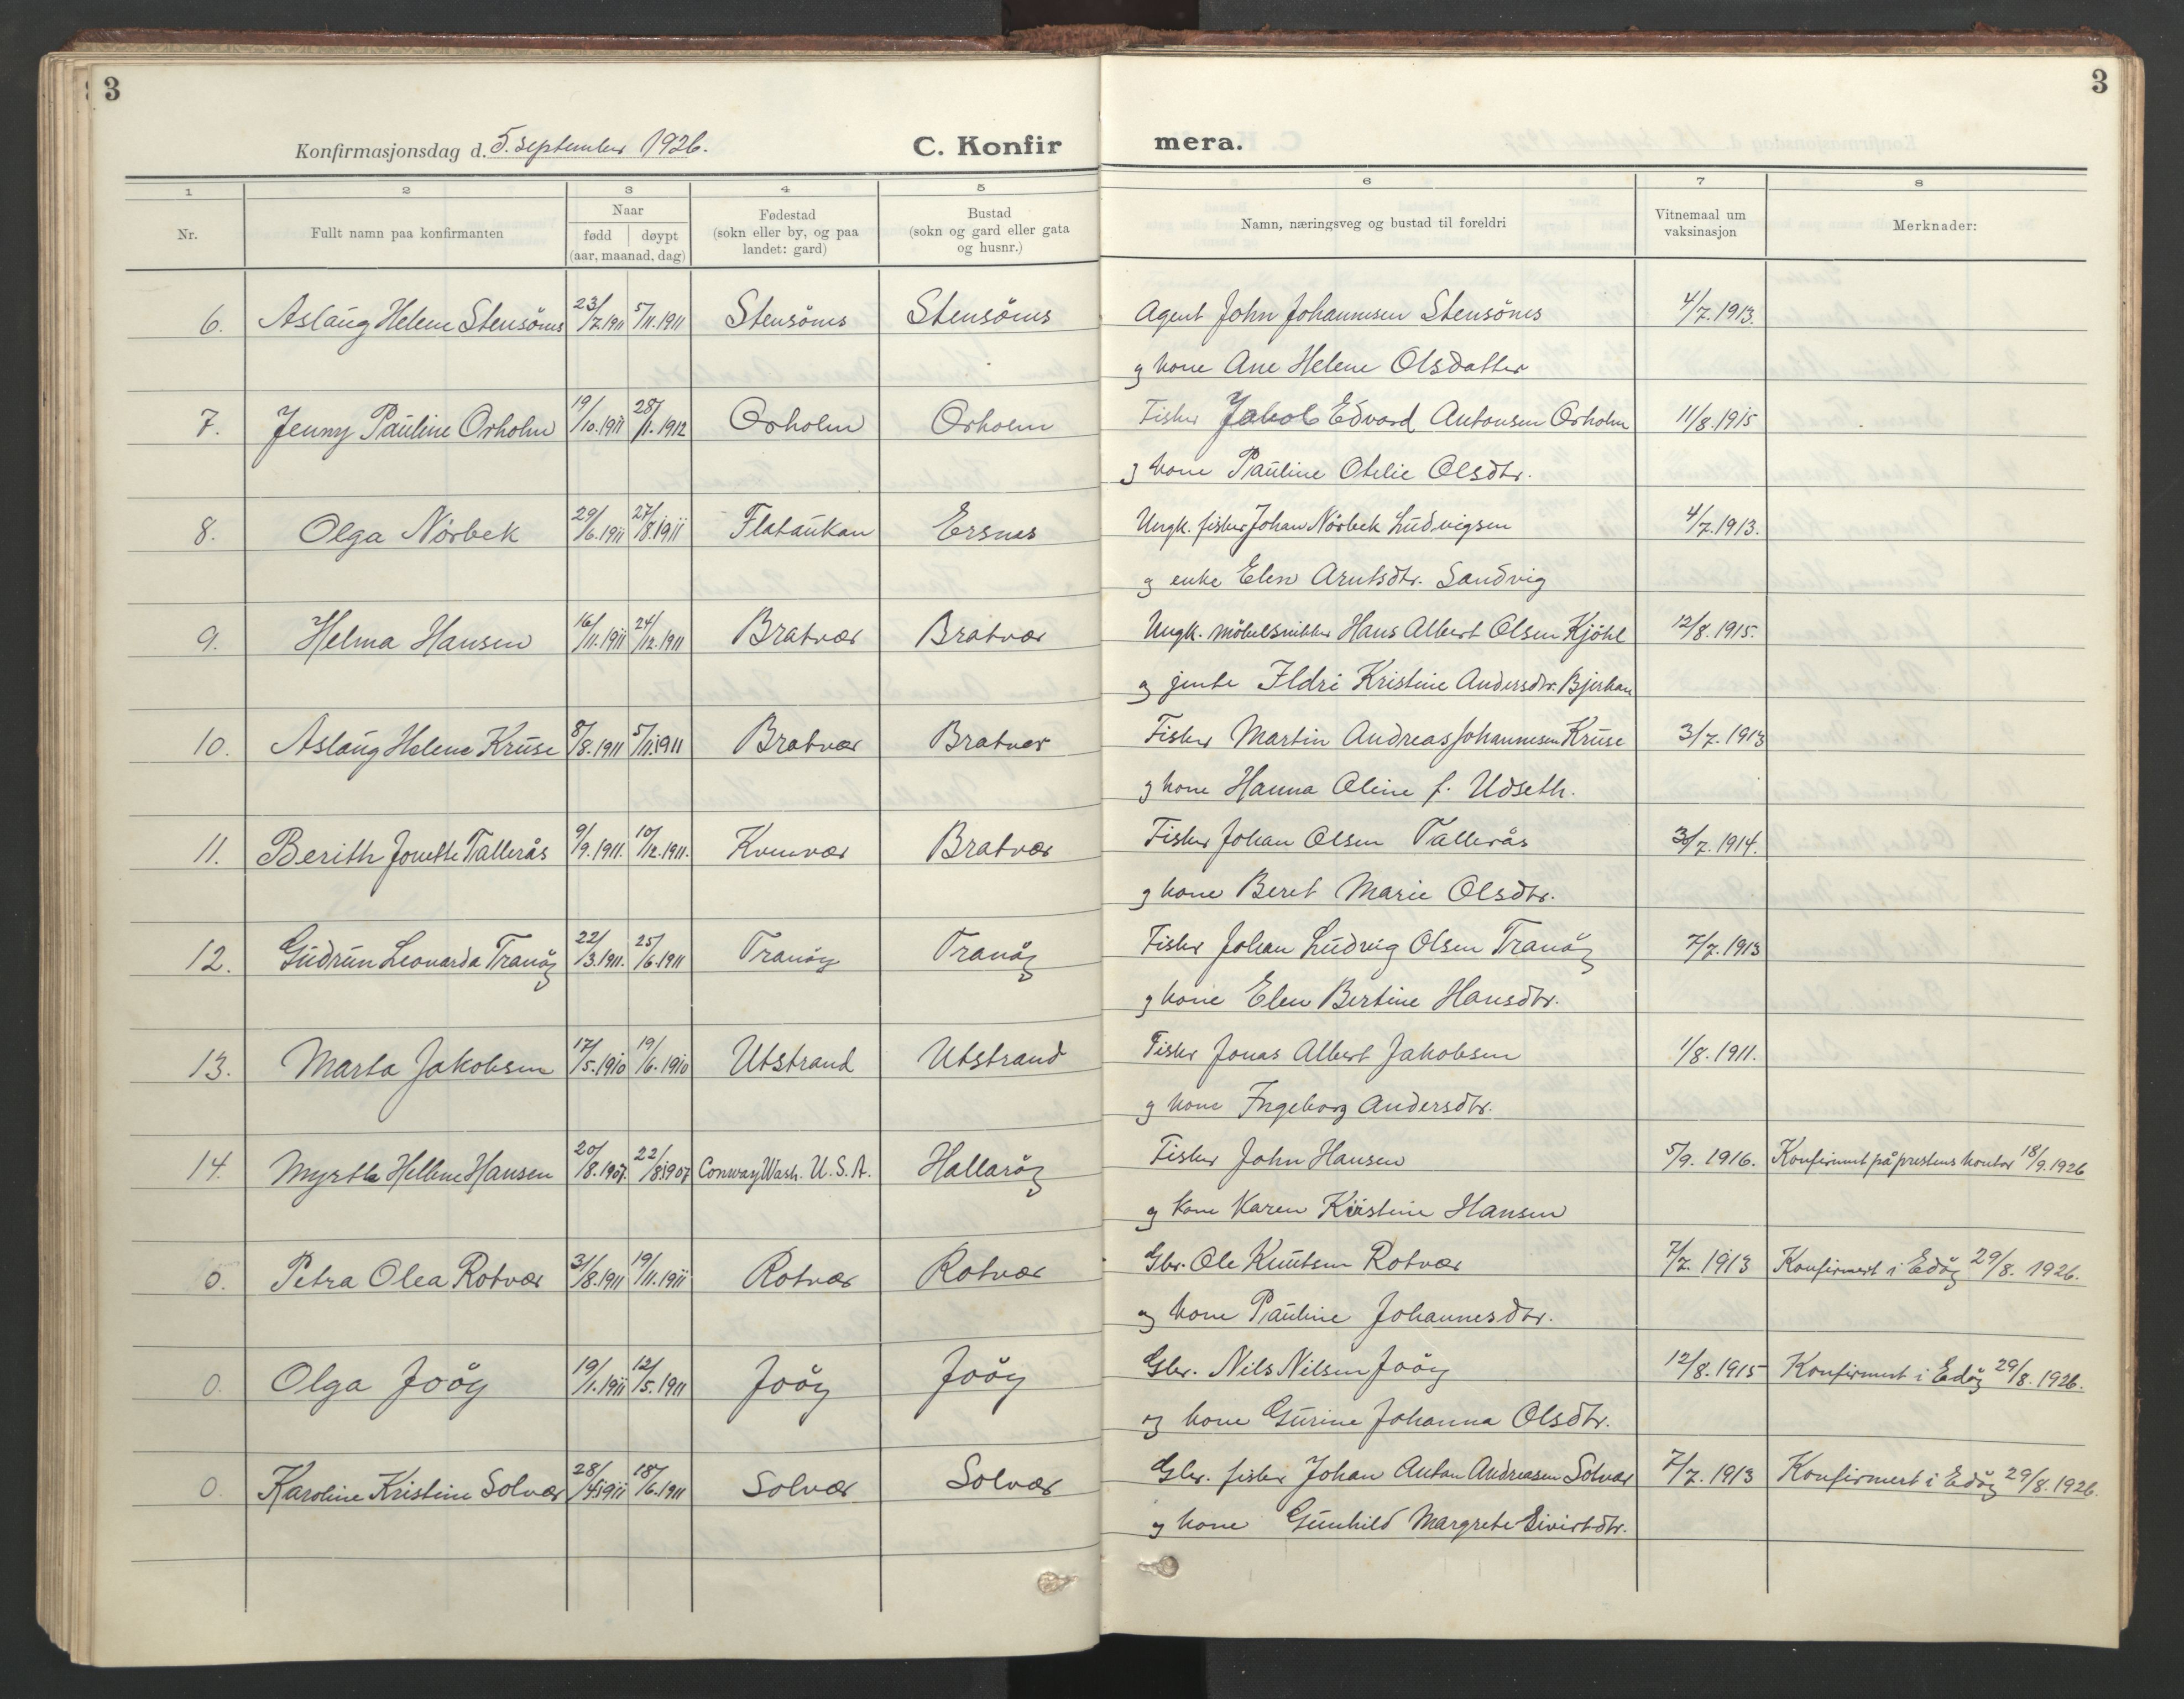 3
3
Konfirmasjonsdag d. 5. september 1926.
C. Konfir
mera.
1 2 3 4 5 6 7 8
Nr. Fullt namn paa konfirmanten Naar fødd døypt (aar, maanad, dag) Fødestad (sokn eller by, og paa landet: gard) Bustad (sokn og gard eller gata og husnr.) Namn, næringsveg og bustad til foreldri Vitnemaal um vaksinasjon Merknader:
6. Aslaug Helene Stensönes 23/7.1911 5/11.1911 Stensönes Stensönes Agent John Johannesen Stensönes 4/7.1913.
og kone Ane Helene Olsdatter
7. Jenny Pauline Orholm 19/10.1911 28/1.1912 Orholm Orholm Fisker Jakob Edvard Antonsen Orholm 11/8.1915
og kone Pauline Otelie Olsdtr.
8. Olga Nörbek 29/6.1911 27/8.1911 Flataukan Ersnes Ungk. fisker Johan Nörbek Ludvigsen 4/7.1913.
og enke Elen Arntsdtr. Sandvig
9. Helma Hansen 16/11.1911 24/12.1911 Bratvær Bratvær Ungk. möbelsnikker Hans Albert Olsen Kjöhl 12/8.1915.
og jente Ildri Kristine Andersdtr. Bjerkan
10. Aslaug Helene Kruse 8/8.1911 5/11.1911 Bratvær Bratvær Fisker Martin Andreas Johannesen Kruse 3/7.1913
og kone Hanna Oline f. Udseth.
11. Berith Jonette Tallerås 9/9.1911. 10/12.1911. Kvenvær Bratvær Fisker Johan Olsen Tallerås 30/7.1914.
og kone Beret Marie Olsdtr.
12. Gudrun Leonarda Tranöy 22/3.1911. 25/6.1911 Tranöy Tranöy Fisker Johan Ludvig Olsen Tranöy 7/7.1913
og kone Elen Bertine Hansdtr.
13. Marta Jakobsen 17/5.1910 19/6.1910 Utstrand Utstrand Fisker Jonas Albert Jakobsen 1/8.1911.
og kone Ingeborg Andersdtr.
14. Myrtle Hellene Hansen 20/8.1907. 22/8.1907 Conway Wash. U.S.A. Hallaröy Fisker John Hansen 5/9.1916. Konfirmert på prestens kontor 18/9.1926
og kone Karen Kristine Hansen
0. Petra Olea Rotvær 31/8.1911 19/11.1911 Rotvær Rotvær Gbr. Ole Knutsen Rotvær 7/7.1913 Konfirmert i Edöy 29/8. 1926.
og kone Pauline Johannesdtr.
0. Olga Joöy 19/1.1911 12/5.1911 Joöy Joöy Gbr. Nils Nilsen Joöy 12/8.1915 Konfirmert i Edöy 29/8.1926.
og kone Gurine Johanna Olsdtr.
0. Karoline Kristine Solvær 28/4.1911 18/6.1911 Solvær Solvær Gbr. fisker Johan Anton Andreasen Solvær 7/7.1913 Konfirmert i Edöy 29/8.1926.
og kone Gunhild Margrete Sivertdtr.